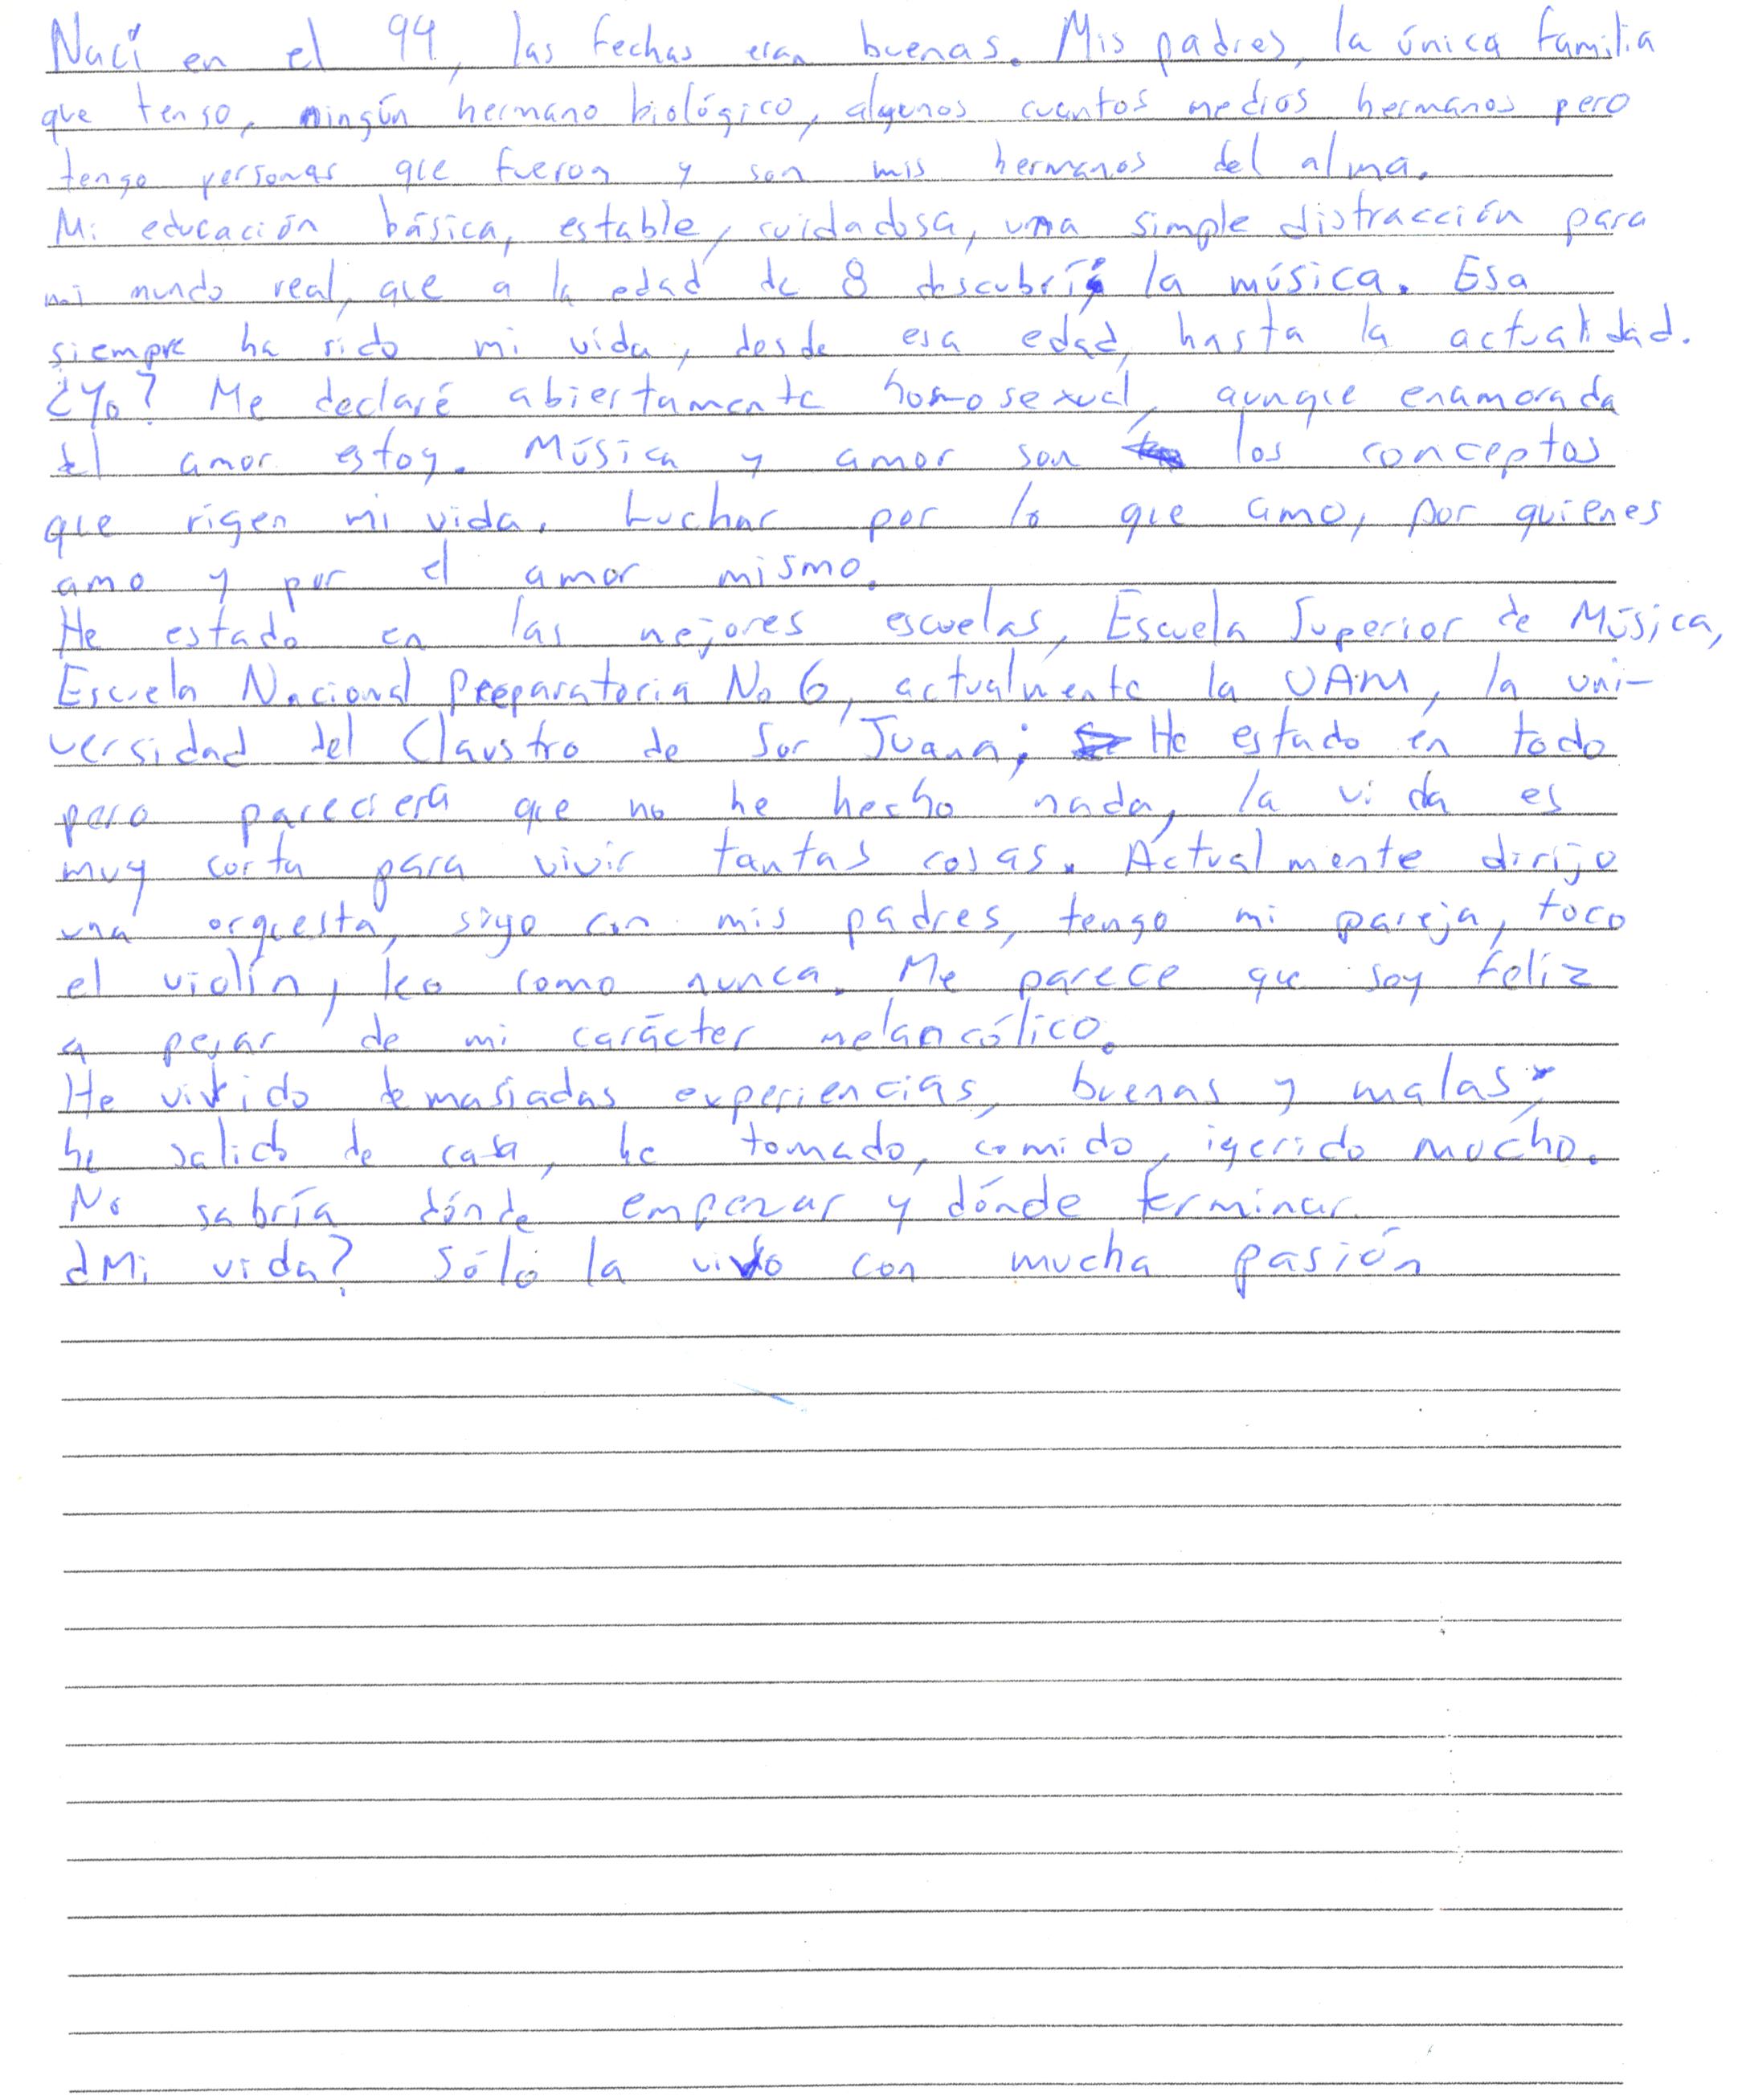 Nací en el 94, las fechas eran buenas. Mis padres, la única familia
que tengo, ningún hermano biológico, algunos cuantos medios hermanos pero
tengo personas que fueron y son mis hermanos del alma.
Mi educación básica, estable, cuidadosa, una simple distracción para
mi mundo real, que a la edad de 8 descubrí la música. Esa
siempre ha sido mi vida, desde esa edad, hasta la actualidad.
¿Yo? Me declaré abiertamente homosexual, aunque enamorada
del amor estoy. Música y amor son los conceptos
que rigen mi vida. Luchar por lo que amo, por quienes
amo y por el amor mismo.
He estado en las mejores escuelas, Escuela Superior de Música,
Escuela Nacional Preparatoria No 6, actualmente la UAM, la uni-
versidad del Claustro de Sor Juana; He estado en todo
pero pareciera que no he hecho nada, la vida es
muy corta para vivir tantas cosas. Actualmente dirijo
una orquesta, sigo con mis padres, tengo mi pareja, toco
el violín, leo como nunca. Me parece que soy feliz
a pesar de mi carácter melancólico.
He vivido demasiadas experiencias, buenas y malas,
he salido de casa, he tomado, comido, igerido mucho.
No sabría dónde empezar y dónde terminar.
¿Mi vida? Sólo la vivo con mucha pasión